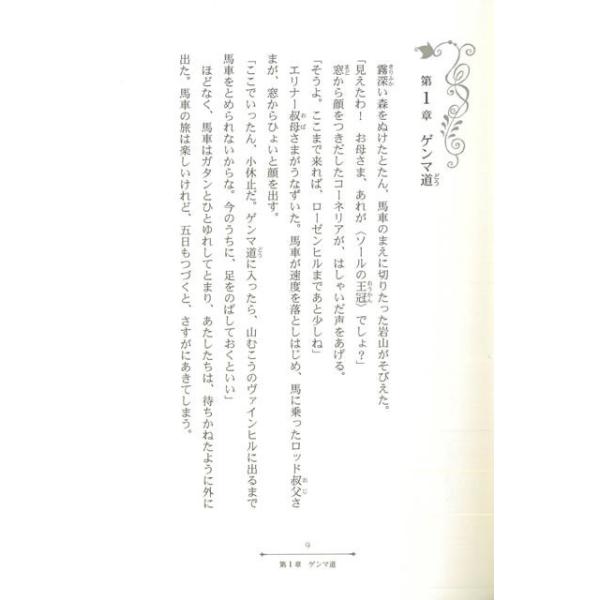 第1章 ゲンマ道
霧深い森をぬけたとたん、馬車のまえに切りたった岩山がそびえた。
「見えたわ! お母さま、あれが〈ソールの王冠〉でしょ?」
窓から顔をつきだしたコーネリアが、はしゃいだ声をあげる。
「そうよ。ここまで来れば、ローゼンヒルまであと少しね」
エリナー叔母さまがうなずいた。馬車が速度を落としはじめ、馬に乗ったロッド叔父さ
まが、窓からひょいと顔を出す。
「ここでいったん、小休止だ。ゲンマ道に入ったら、山むこうのヴァインヒルに出るまで
馬車をとめられないからな。今のうちに、足をのばしておくといい」
ほどなく、馬車はガタンとひとゆれしてとまり、あたしたちは、待ちかねたように外に
出た。馬車の旅は楽しいけれど、五日もつづくと、さすがにあきてしまう。
9
第1章 ゲンマ道